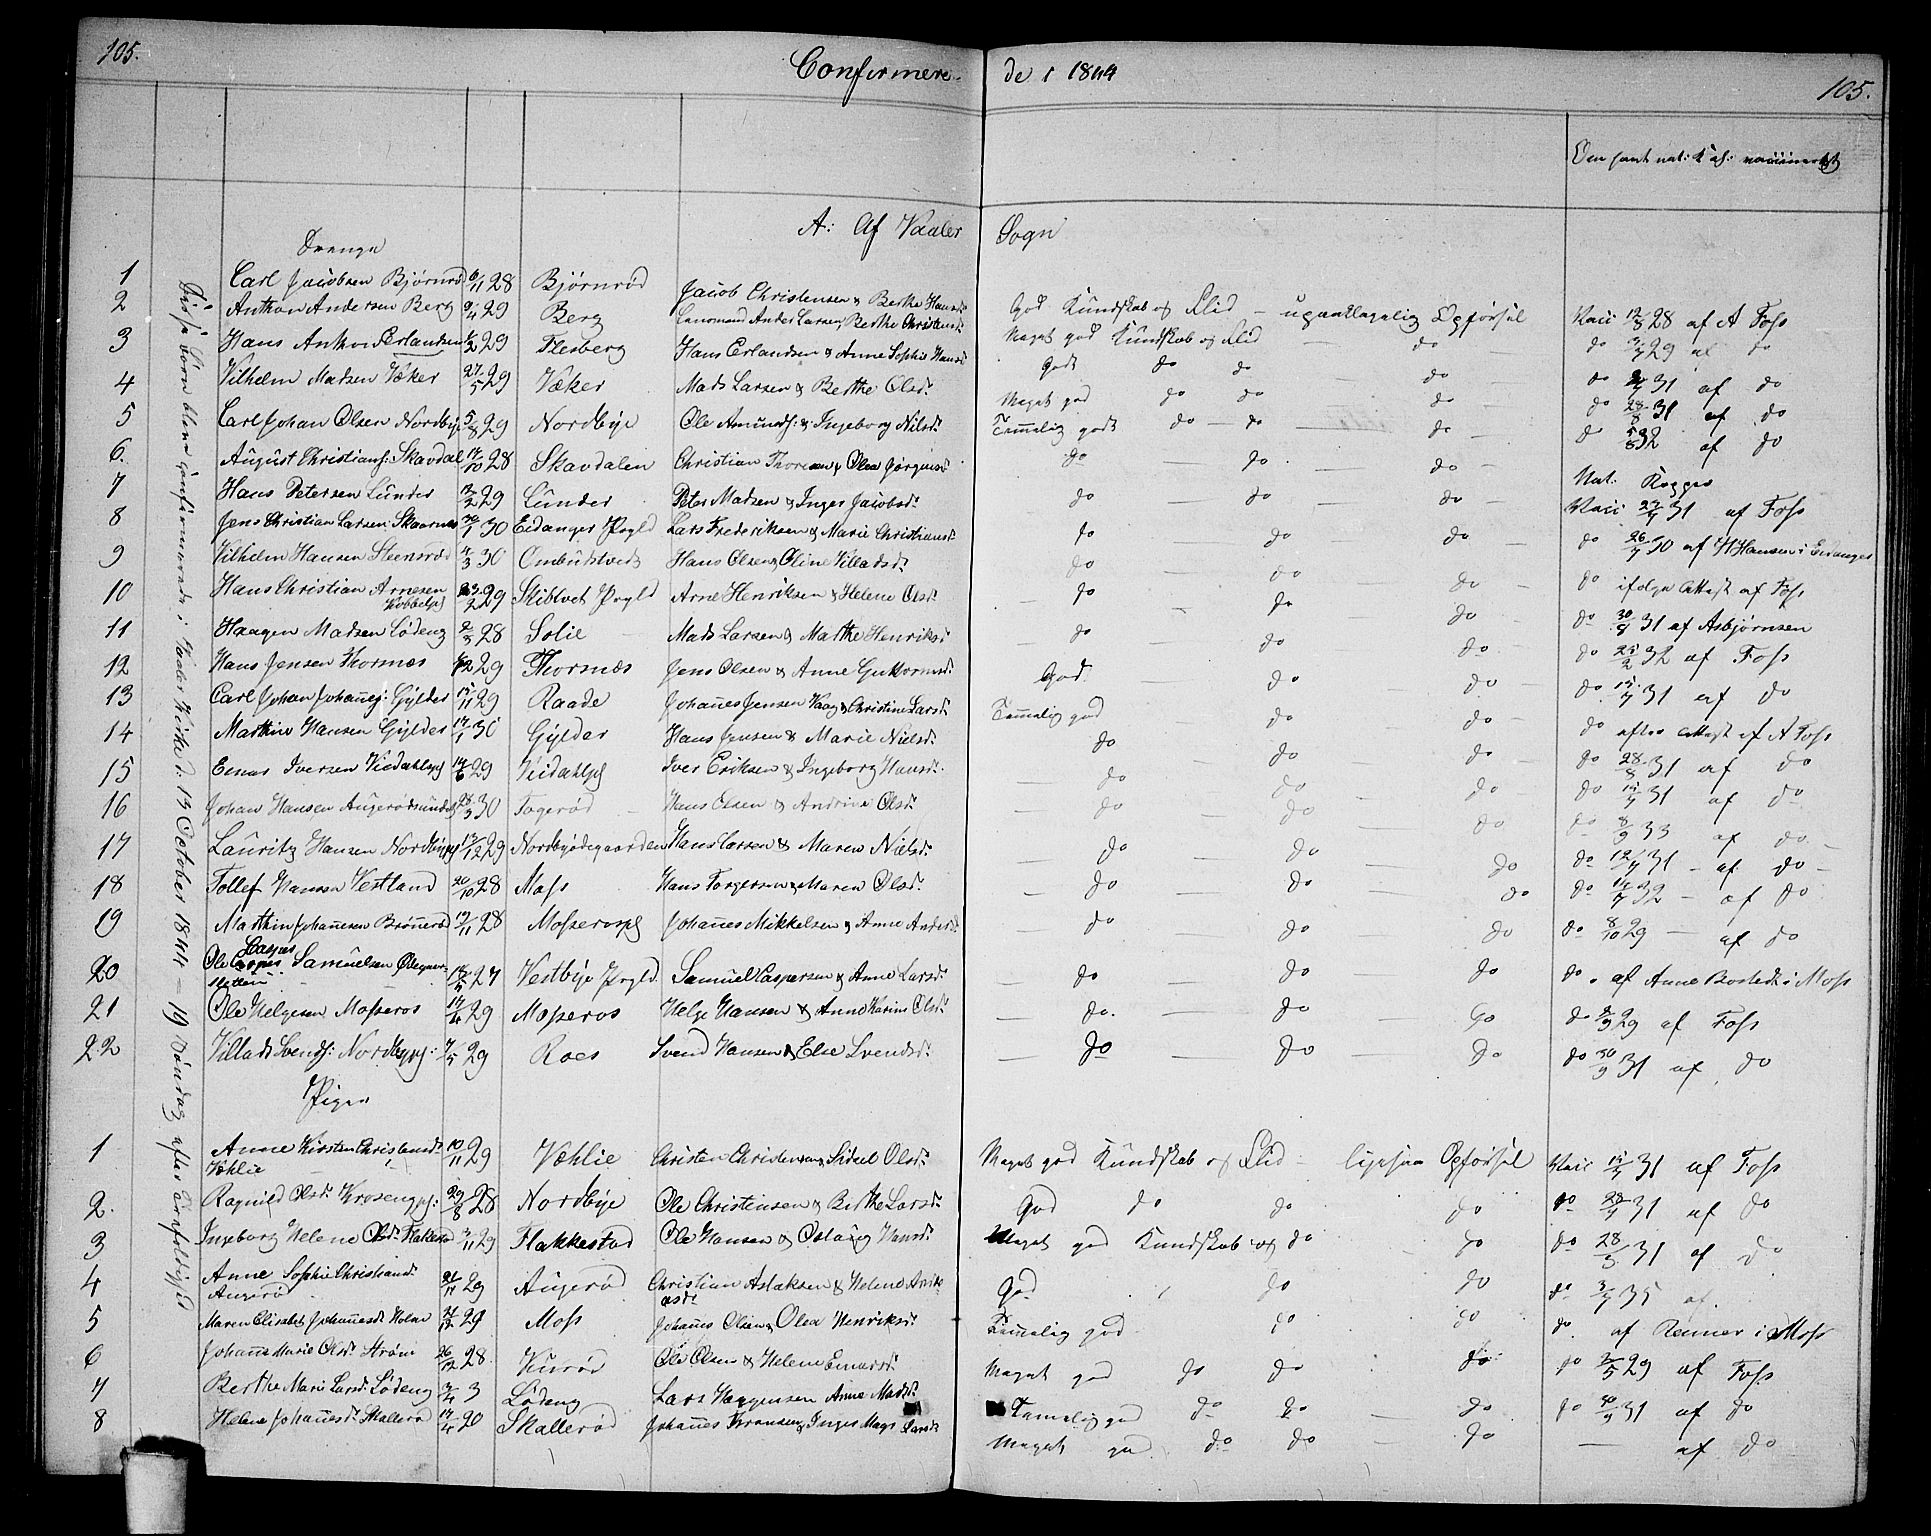 105.
Confirmere-
de i 1844
105.
A: Af Vaaler Sogn
Drenge
Disse Børn blev Confirmerede i Vaaler Kirke d. 13 October 1844 - 19 Søndag efter Trefoldigh.
1 Carl Jacobsen Bjørnrød 6/11 28 Bjørnrød Jacob Christensen & Berthe Hansd: God Kundskab og Flid - upaaklagelig Opførsel Vacc 12/8 28 af A Foss
2 Anthon Andersen Berg 9/4 29 Berg Lensmand Anders Larsen & Berthe Christensd: Meget god Kundskab og Flid - do - do 29 af do
3 Hans Anthon Erlandsen 29 Flesberg Hans Erlandsen & Anne Sophie Hansd: Godt do do - do do 31 af do
4 Vilhelm Madsen Væker 27/5 29 Væker Mads Larsen & Berthe Olsd: Meget god do do - do - do 28/8 31 af do
5 Carl Johan Olsen Nordbye 5/8 29 Nordbye Ole Amunds: & Ingeborg Nilsd: Temmelig godt do - do - do - do 5/8 32 af do
6. August Christians: Skavdal 14/10 28 Skavdalen Christian Thoresen & Olea Jørgensd: do - do - do - Nat: Kopper
7 Hans Petersen Lunder 12/2 29 Lunder Peter Madsen & Inger Jacobsd: do do - do - Vacc 27/7 31 af Foss
8 Jens Christian Larsen Skaarnes 30 Eidanger Prgld Lars Frederiksen & Marie Christiansd: do do - do - do 26/7 30 af H Hansen i Eidanger
9 Vilhelm Hansen Steensrød 4/3 30 Ombudstvedt Hans Olsen & Oline Villadsd: do - do - do - do ifølge Attest af Foss
10 Hans Christian Arnesen 23/2 29 Skibtvet Prgld Arne Henriksen & Helene Olsd: - do - do - do - do 30/9 31 af Asbjørnsen
11 Haagen Madsen Lødeng 2/3 28 Solie - Mads Larsen & Marthe Henriksd: - do - do - do - do 25/2 32 af Foss
12 Hans Jensen Thormæs 29 Thormæs Jens Olsen & Anne Guttormsd: - God - do - do do 15/7 31 af do
13 Carl Johan Johanes: Gylder 15/11 29 Raade Johanes Jensen Vaag & Christine Larsd: Temmelig god do - do - do efter Attest af A Foss
14 Marthin Hansen Gylder 14/1 30 Gylder Hans Jensen & Marie Nielsd: do - do - do do 28/8 31 af do
15 Enar Iversen Viedahl 14/6 29 Viidahl Iver Eriksen & Ingeborg Hansd: do do - do - do 15/7 31 af do
16 Johan Hansen Augerødsundet 28/3 30 Togerød - Hans Olsen & Andrine Olsd: - do - do - do do 8/9 33 af do
17 Lauritz Hansen Nordbye 13/12 29 Nordbyødegaarden Hans Larsen & Maren Nielsd: - do - do - do do 12/7 31 - af do -
18 Tollef Hansen Vestland 20/10 28 Moss Hans Torgersen & Maren Olsd: - do - do - do do 14/7 32 - af do
19 Marthin Johanesen Brønerød 19/11 28 Mosseros Johanes Mikkelsen & Anne Andersd: - do - do do do 8/10 29 - af do
20 Ole Casper Samuelsen 27 Vestbye Prgld Samuel Caspersen & Anne Larsd: - do - do - do do . af Anne Bostedt i Moss
21 Ole Helgesen Mosseros 14/4 29 Mosseros Helge Hansen & Anne Karine Olsd: - do. - do - do do 29 af Foss
22 Villads Svends: Nordbye: 7/5 29 Roes Svend Hansen & Else Svendsd: - do - do - do do 30/9 31 af do
Piger
1 Anne Kirstine Christensd: Vehlie 10/11 29 Væhlie Christen Christensen & Sidsel Olsd: Meget god Kundskab og Flid - Opførsel Vacc 15/7 31 af Foss
2. Ragnild Olsd: Kroseng: 29/8 28 Nordbye Ole Christensen & Berthe Larsd: God do do do do 28/7 31 af do
3 Ingeborg Helene Olsd: Flakkestad 3/11 29 Flakkestad Ole Hansen & Oslaug Hansd: Meget god Kundskab og do - do do 28/3 31 af do
4 Anne Sophie Christiansd: Augerød 21/11 29 Augerød Christian Aslaksen & Helene God do do do 3/7 35 af
5 Maren Elisabet Johanesd: Holm 29 Moss Johanes Olsen & Olea Henriksd: Temmelig god do do do . af Renner i Moss
6 Johane Marie Olsd: Strøm 26/12 28 Kurød Ole Olsen & Helene Enersd: Meget god do do do do 2/5 29 af Foss
7 Berthe Marie Larsd: Lødeng 3 Lødeng Lars Haagensen Anne Madsd: Temmelig god do do - do do 30/9 31 af do
8 Helene Johanesd: Skallerød 14/4 20 Skallerød Johanes & Inger Larsd: Meget god do do - do - af do